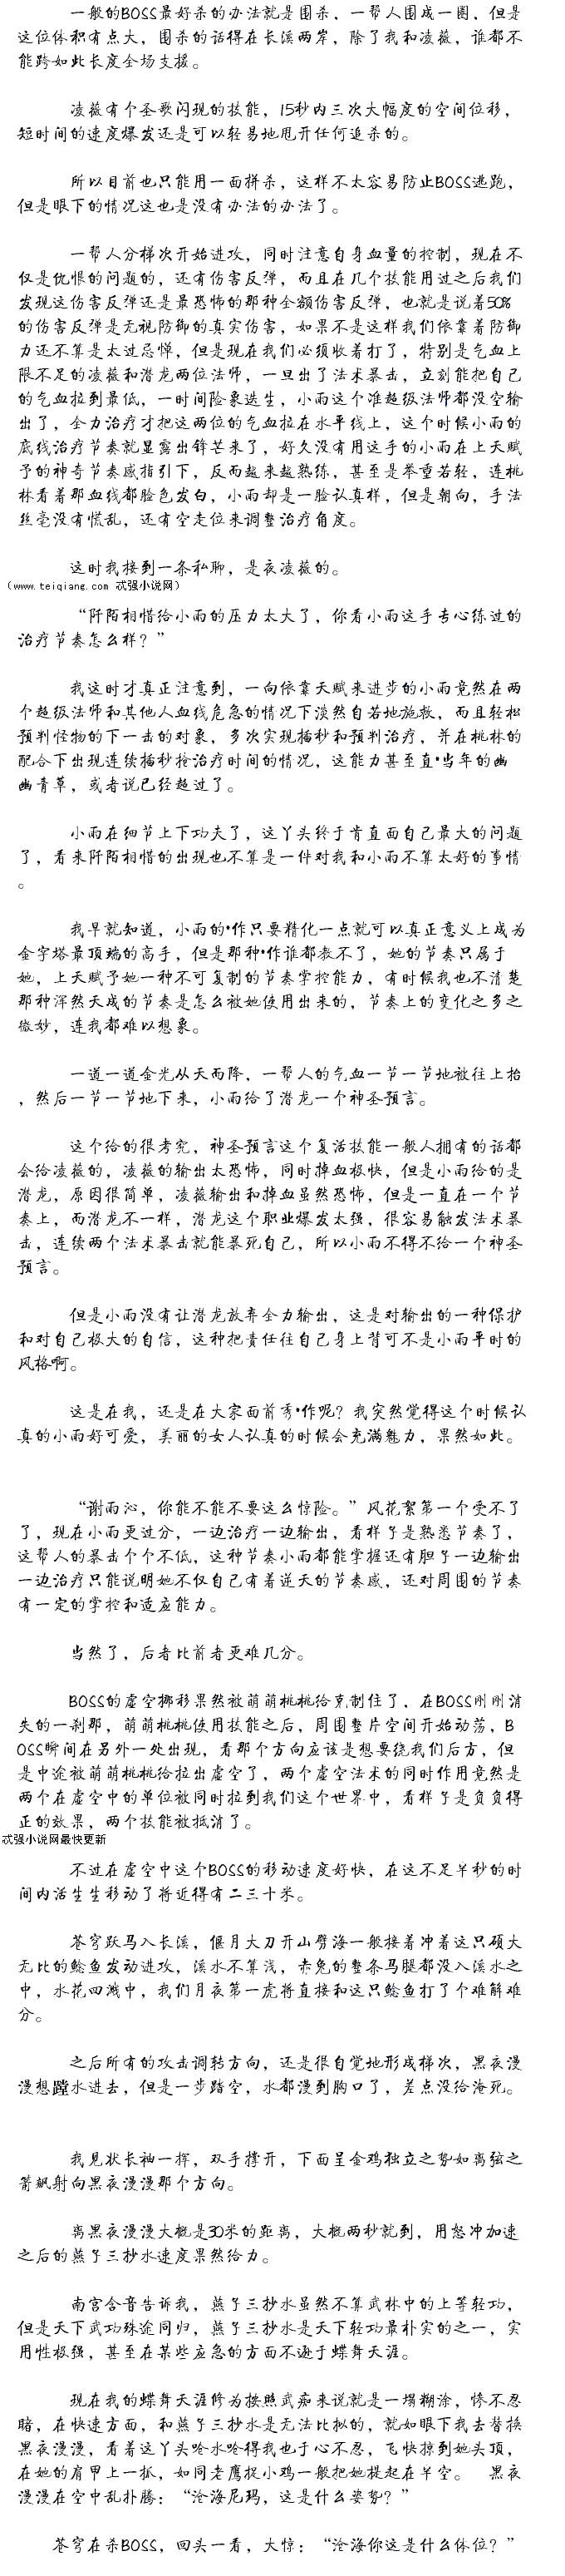 一般的BOSS最好杀的办法就是围杀，一帮人围成一圈，但是
这位体积有点大，围杀的话得在长溪两岸，除了我和凌薇，谁都不
能跨如此长度全场支援。
凌薇有个圣歌闪现的技能，15秒内三次大幅度的空间位移，
短时间的速度爆发还是可以轻易地甩开任何追杀的。
所以目前也只能用一面拼杀，这样不太容易防止BOSS逃跑，
但是眼下的情况这也是没有办法的办法了。
一帮人分梯次开始进攻，同时注意自身血量的控制，现在不
仅是仇恨的问题的，还有伤害反弹，而且在几个技能用过之后我们
发现这伤害反弹还是最恐怖的那种全额伤害反弹，也就是说着50%
的伤害反弹是无视防御的真实伤害，如果不是这样我们依靠着防御
力还不算是太过忌惮，但是现在我们必须收着打了，特别是气血上
限不足的凌薇和潜龙两位法师，一旦出了法术暴击，立刻能把自己
的气血拉到最低，一时间险象迭生，小雨这个准超级法师都没空输
出了，全力治疗才把这两位的气血拉在水平线上，这个时候小雨的
底线治疗节奏就显露出锋芒来了，好久没有用这手的小雨在上天赋
予的神奇节奏感指引下，反而越来越熟练，甚至是举重若轻，连桃
林看着那血线都脸色发白，小雨却是一脸认真样，但是朝向，手法
丝毫没有慌乱，还有空走位来调整治疗角度。
这时我接到一条私聊，是夜凌薇的。
（www.teiqiang.com 忒强小说网）
“阡陌相惜给小雨的压力太大了，你看小雨这手专心练过的
治疗节奏怎么样？”
我这时才真正注意到，一向依靠天赋来进步的小雨竟然在两
个超级法师和其他人血线危急的情况下淡然自若地施救，而且轻松
预判怪物的下一击的对象，多次实现插秒和预判治疗，并在桃林的
配合下出现连续插秒抢治疗时间的情况，这能力甚至直·当年的幽
幽青草，或者说已经超过了。
小雨在细节上下功夫了，这丫头终于肯直面自己最大的问题
了，看来阡陌相惜的出现也不算是一件对我和小雨不算太好的事情
。
我早就知道，小雨的·作只要精化一点就可以真正意义上成为
金字塔最顶端的高手，但是那种·作谁都教不了，她的节奏只属于
她，上天赋予她一种不可复制的节奏掌控能力，有时候我也不清楚
那种浑然天成的节奏是怎么被她使用出来的，节奏上的变化之多之
微妙，连我都难以想象。
一道一道金光从天而降，一帮人的气血一节一节地被往上抬
，然后一节一节地下来，小雨给了潜龙一个神圣预言。
这个给的很考究，神圣预言这个复活技能一般人拥有的话都
会给凌薇的，凌薇的输出太恐怖，同时掉血极快，但是小雨给的是
潜龙，原因很简单，凌薇输出和掉血虽然恐怖，但是一直在一个节
奏上，而潜龙不一样，潜龙这个职业爆发太强，很容易触发法术暴
击，连续两个法术暴击就能暴死自己，所以小雨不得不给一个神圣
预言。
但是小雨没有让潜龙放弃全力输出，这是对输出的一种保护
和对自己极大的自信，这种把责任往自己身上背可不是小雨平时的
风格啊。
这是在我，还是在大家面前秀·作呢？我突然觉得这个时候认
真的小雨好可爱，美丽的女人认真的时候会充满魅力，果然如此。
“谢雨沁，你能不能不要这么惊险。”风花絮第一个受不了
了，现在小雨更过分，一边治疗一边输出，看样子是熟悉节奏了，
这帮人的暴击个个不低，这种节奏小雨都能掌握还有胆子一边输出
一边治疗只能说明她不仅自己有着逆天的节奏感，还对周围的节奏
有一定的掌控和适应能力。
当然了，后者比前者更难几分。
BOSS的虚空挪移果然被萌萌桃桃给克制住了，在BOSS刚刚消
失的一刹那，萌萌桃桃使用技能之后，周围整片空间开始动荡，B
OSS瞬间在另外一处出现，看那个方向应该是想要绕我们后方，但
是中途被萌萌桃桃给拉出虚空了，两个虚空法术的同时作用竟然是
两个在虚空中的单位被同时拉到我们这个世界中，看样子是负负得
正的效果，两个技能被抵消了。
忒强小说网最快更新
不过在虚空中这个BOSS的移动速度好快，在这不足半秒的时
间内活生生移动了将近得有二三十米。
苍穹跃马入长溪，偃月大刀开山劈海一般接着冲着这只硕大
无比的鲶鱼发动进攻，溪水不算浅，赤兔的整条马腿都没入溪水之
中，水花四溅中，我们月夜第一虎将直接和这只鲶鱼打了个难解难
分。
之后所有的攻击调转方向，还是很自觉地形成梯次，黑夜漫
漫想蹚水进去，但是一步踏空，水都漫到胸口了，差点没给淹死。
我见状长袖一挥，双手撑开，下面呈金鸡独立之势如离弦之
箭飙射向黑夜漫漫那个方向。
离黑夜漫漫大概是30米的距离，大概两秒就到，用怒冲加速
之后的燕子三抄水速度果然给力。
南宫含音告诉我，燕子三抄水虽然不算武林中的上等轻功，
但是天下武功殊途同归，燕子三抄水是天下轻功最朴实的之一，实
用性极强，甚至在某些应急的方面不逊于蝶舞天涯。
现在我的蝶舞天涯修为按照武痴来说就是一塌糊涂，惨不忍
睹，在快速方面，和燕子三抄水是无法比拟的，就如眼下我去替换
黑夜漫漫，看着这丫头呛水呛得我也于心不忍，飞快掠到她头顶，
在她的肩甲上一抓，如同老鹰捉小鸡一般把她提起在半空。 黑夜
漫漫在空中乱扑腾：“沧海尼玛，这是什么姿势？”
苍穹在杀BOSS，回头一看，大惊：“沧海你这是什么体位？”